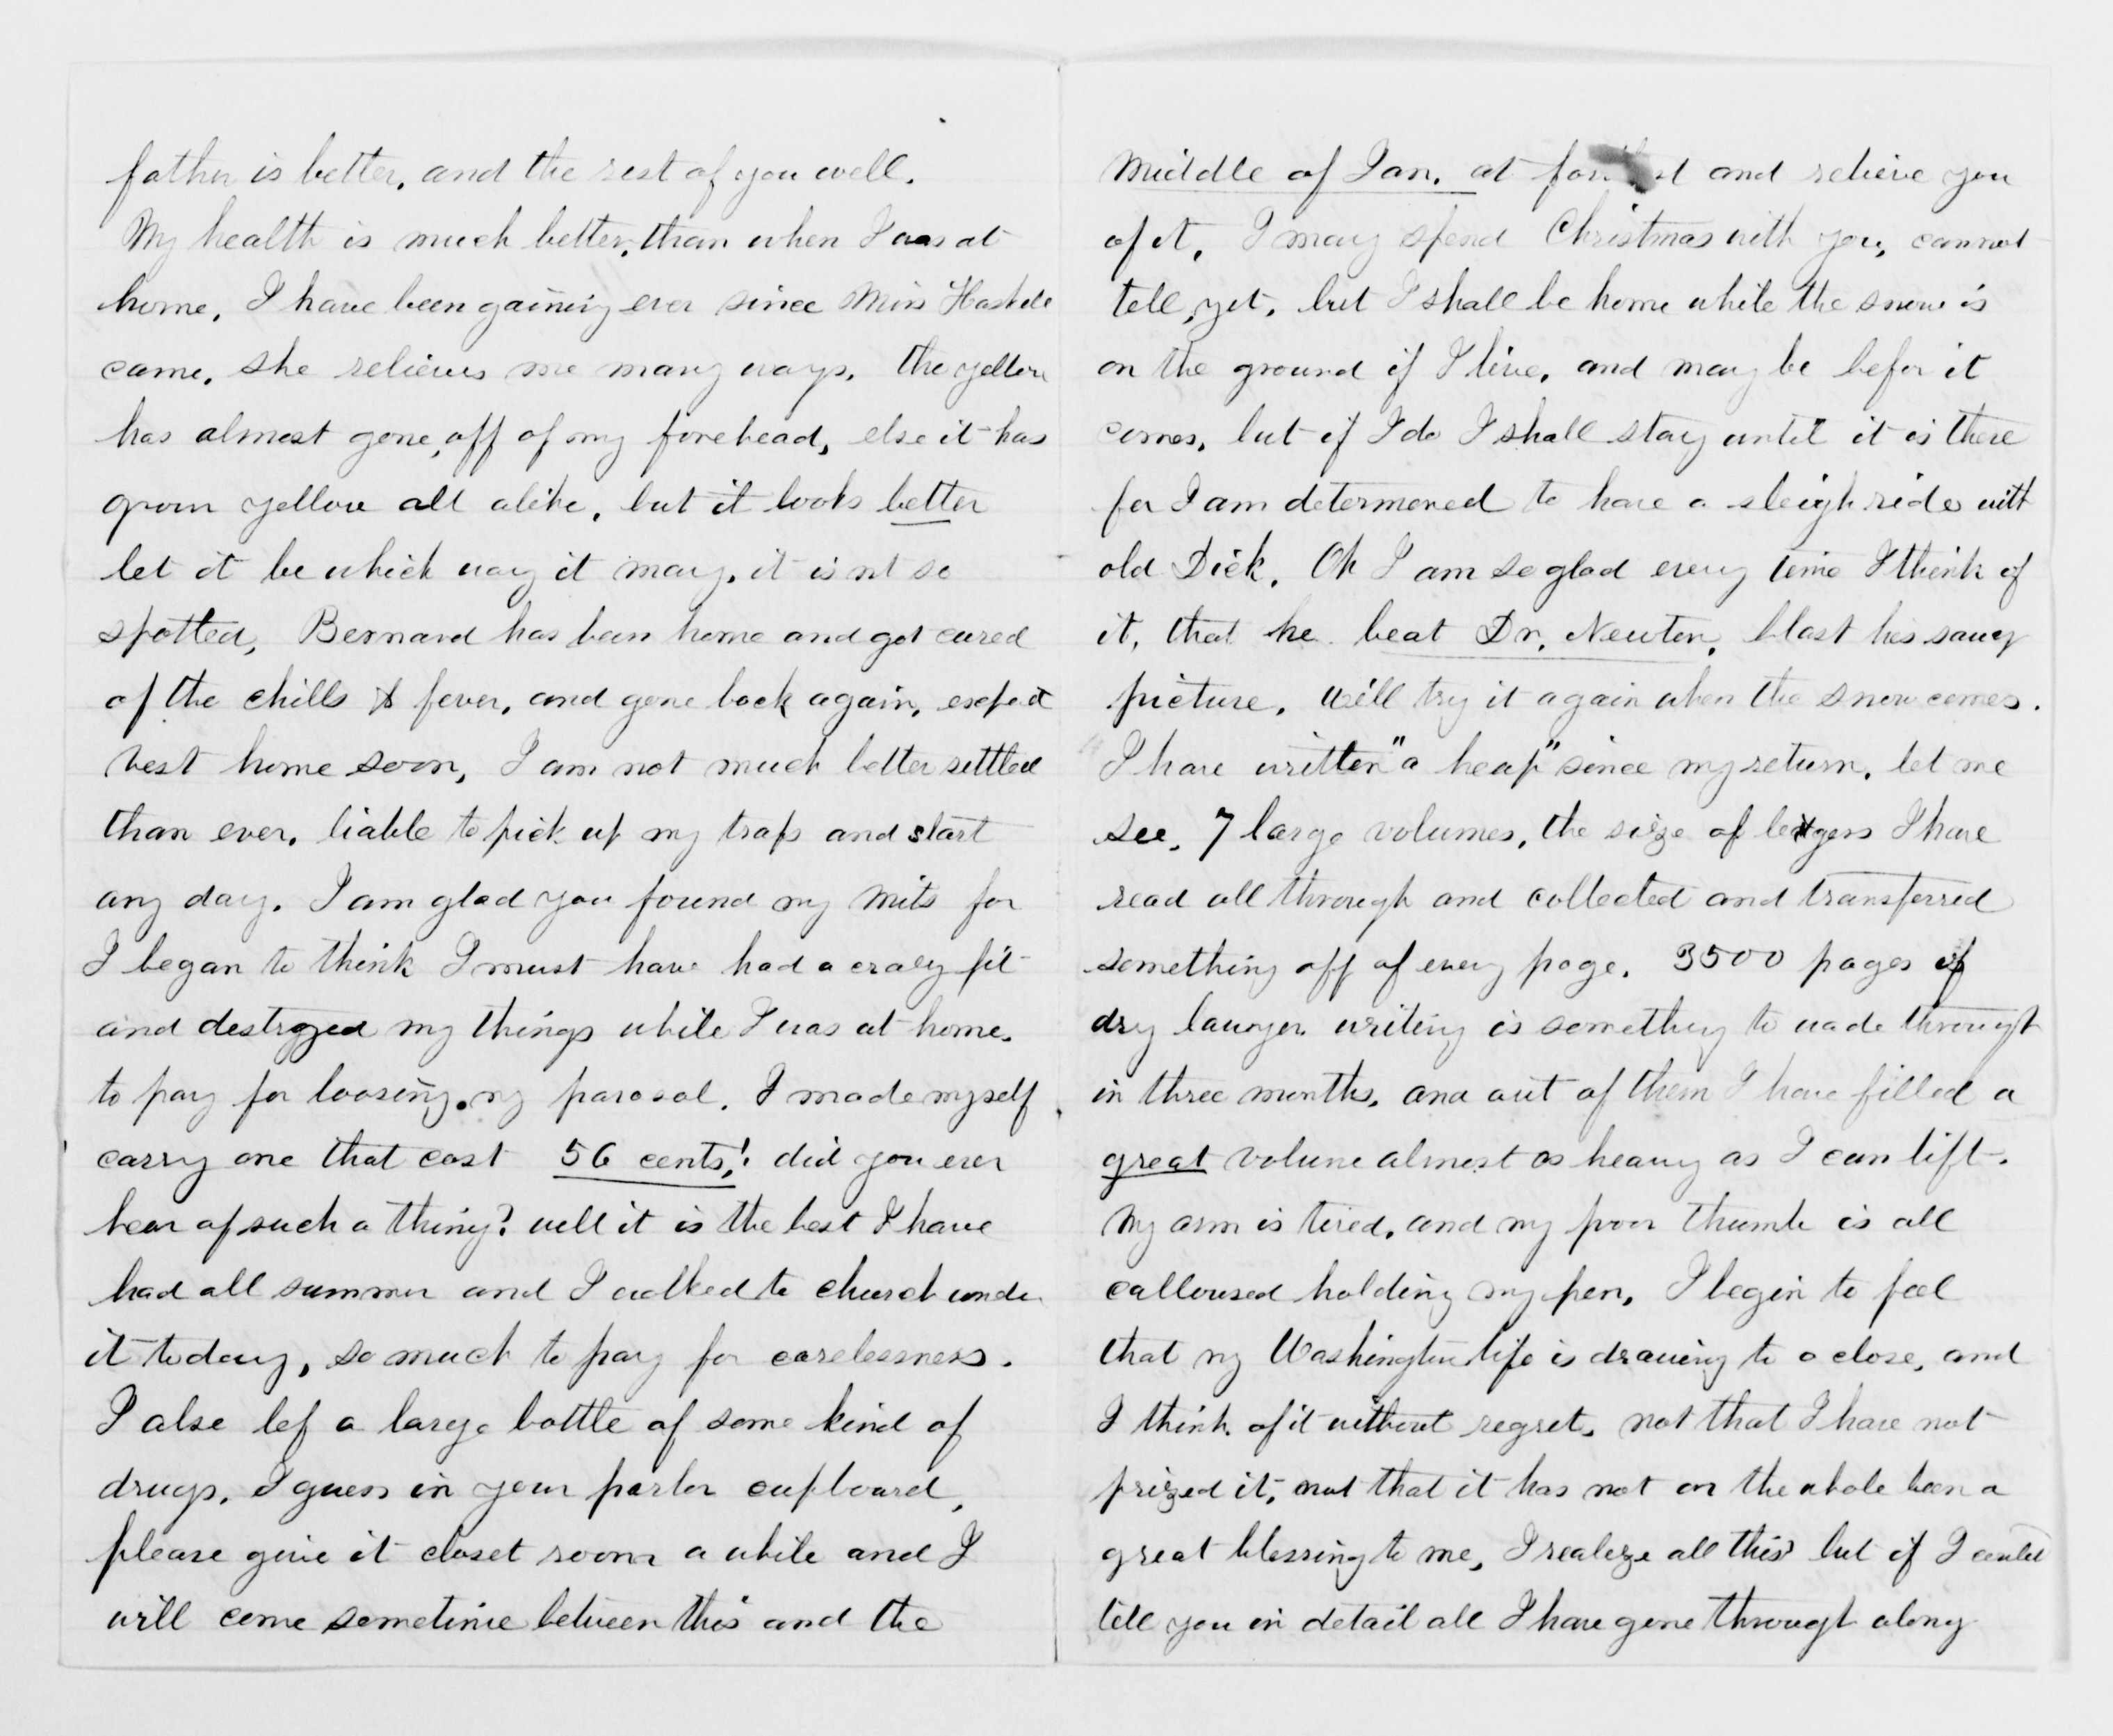 father is better, and the rest of you well.
My health is much better, than when I was at
home, I have been gaining ever since Miss Haskell
came, she relieves me many ways, the yellow
has almost gone, off of my forehead, else it has
grown yellow all alike, but it looks better
let it be which way it may, it is nt so
spotted, Bernard has been home and got cured
of the chills & fever, and gone back again, expect
Vest home soon, I am not much better settled
than ever, liable to pick up my traps and start
any day. I am glad you found my mits for
I began to think I must have had a crazy fit
and destroyed my things while I was at home.
to pay for loosing my parasol, I made myself
carry one that cost 56 cents,! did you ever
hear of such a thing? well it is the best I have
had all summer and I walked to church under
it today, so much to pay for carelessness.
I also lef a large bottle of some kind of
drugs, I guess in your parlor cupboard,
please give it closet room a while and I
will come sometime between this and the
middle of Jan. at and relieve you
of it, I may spend Christmas with you, cannot
tell, yet, but I shall be home while the snow is
on the ground if I live, and may be befor it
comes, but if I do I shall stay until it is there
for I am determened to have a sleigh ride with
old Dick, Oh I am so glad every time I think of
it, that he beat Dr. Newton, blast his saucy
picture, will try it again when the snow comes.
I have written "a heap" since my return, let me
see, 7 large volumes, the size of legers I have
read all through and collected and transferred
something off of every page, 3500 pages of
dry lawyer writing is something to wade through
in three months, and out of them I have filled a
great volume almost as heavy as I can lift.
My arm is tired, and my poor thumb is all
calloused holding my pen, I begin to feel
that my Washington life is drawing to a close, and
I think of it without regret, not that I have not
prized it, not that it has not on the whole been a
great blessing to me, I realize all this but if I could
tell you in detail all I have gone through along